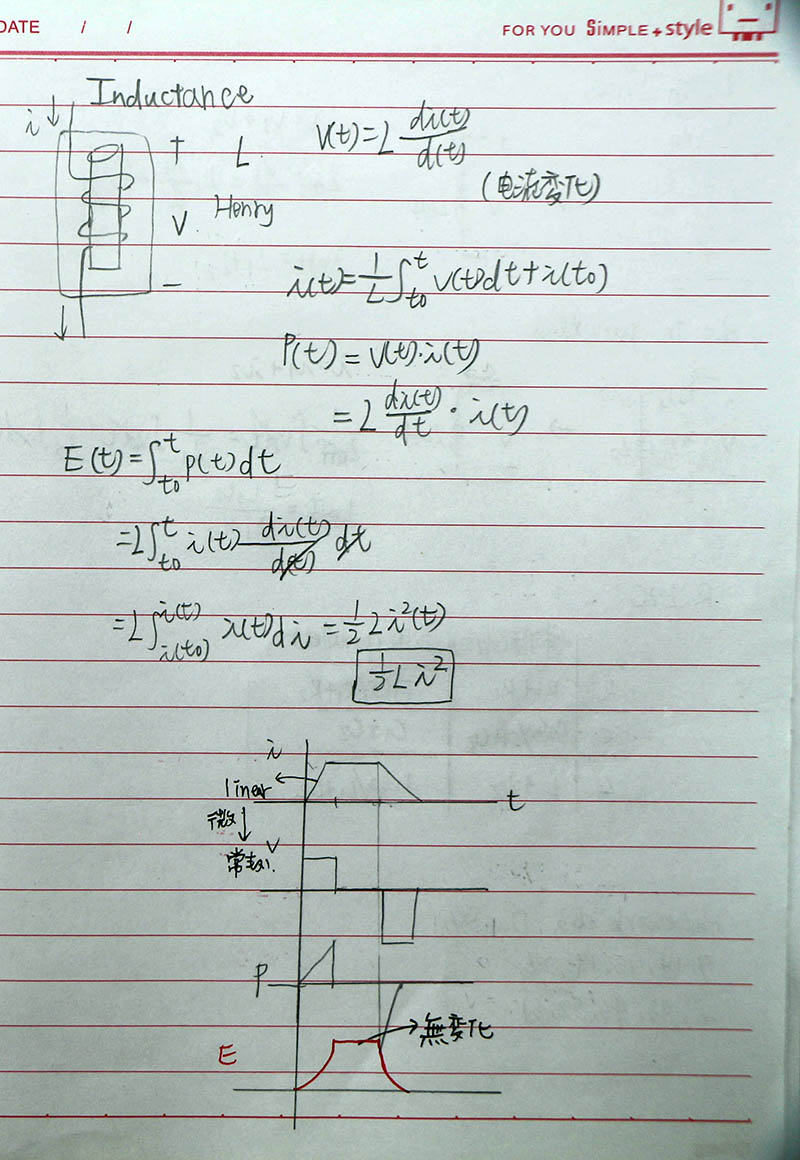 DATE / /
FOR YOU SiMPLE + style
Inductance
i
+ L
V(t) = L di(t)/d(t)
(电流变化)
V Henry
−
i(t) = 1/L ∫_{t0}^{t} V(t)dt + i(t0)
P(t) = V(t)·i(t)
= L di(t)/dt · i(t)
E(t) = ∫_{t0}^{t} p(t)dt
= L ∫_{t0}^{t} i(t) di(t)/d(t) dt
= L ∫_{i(t0)}^{i(t)} i(t) di = 1/2 L i²(t)
1/2 L i²
i
linear
t
微
V
常数
P
無变化
E